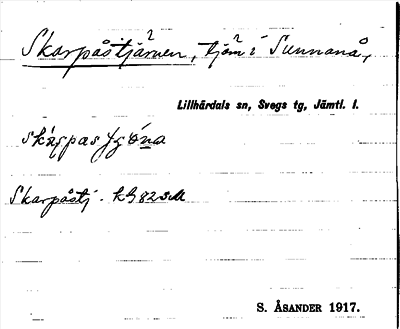 Skarpåstjärnen, tjärn i Sunnanå,
Lillhärdals sn, Svegs tg, Jämtl. l.
Skarpåstj. kb 82 SM
S. ÅSANDER 1917.